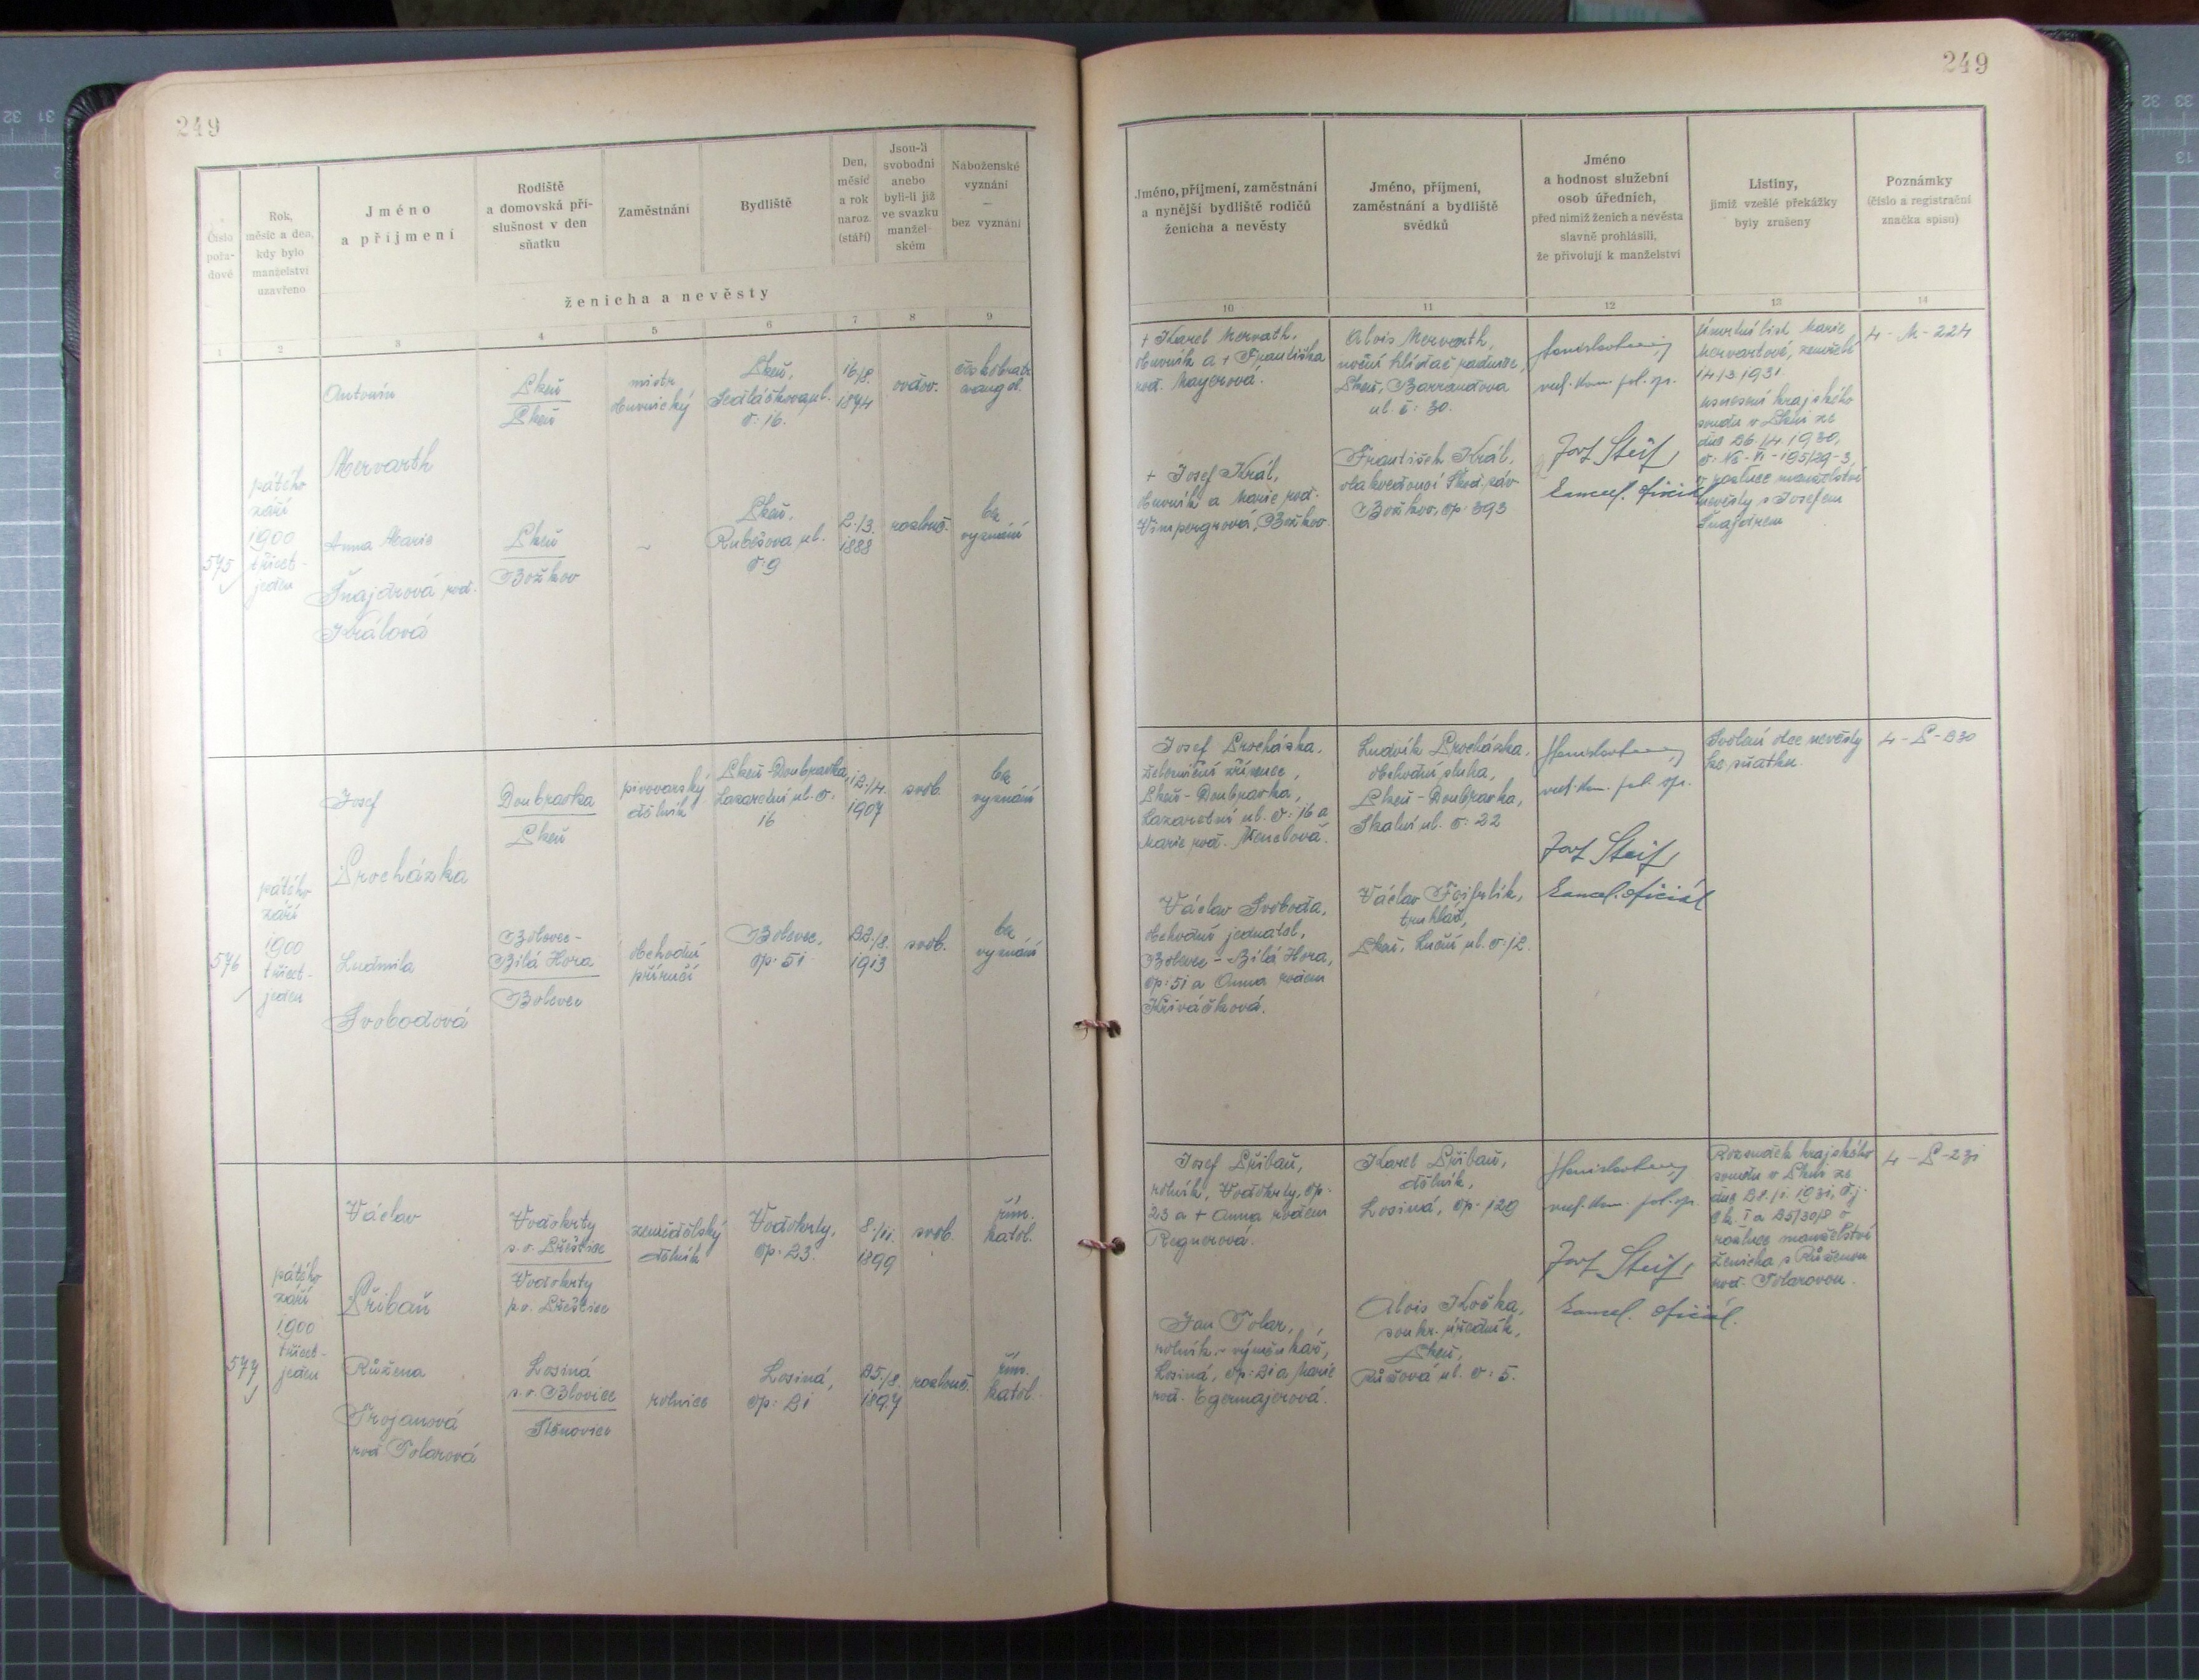 249
249
Číslo
pořa-
dové
Rok,
měsíc a den,
kdy bylo
manželství
uzavřeno
Jméno
a příjmení
Rodiště
a domovská pří-
slušnost v den
sňatku
Zaměstnání
Bydliště
Den,
měsíc
a rok
naroz.
(stáří)
Jsou-li
svobodni
anebo
byli-li již
ve svazku
manžel-
ském
Náboženské
vyznání
—
bez vyznání
ženicha a nevěsty
1 2 3 4 5 6 7 8 9
Jméno, příjmení, zaměstnání
a nynější bydliště rodičů
ženicha a nevěsty
Jméno, příjmení,
zaměstnání a bydliště
svědků
Jméno
a hodnost služební
osob úředních,
před nimiž ženich a nevěsta
slavně prohlásili,
že přivolují k manželství
Listiny,
jimiž vzešlé překážky
byly zrušeny
Poznámky
(číslo a registrační
značka spisu)
10 11 12 13 14
575
pátého
září
1900
třicet-
jeden
Antonín
Mervarth
Plzeň
Plzeň
mistr
obuvnický
Plzeň,
Sedláčkova ul.
č: 16.
16/8.
1874
ovdov.
čes. kobratr.
evangel.
Anna Marie
Šnajdrová roz.
Králová
Plzeň
Božkov
~
Plzeň,
Rubešova ul.
č: 9
2./3.
1888
rozlouč.
bez
vyznání
+ Karel Mervath,
obuvník a + Františka
roz. Mayerová.
+ Josef Král,
obuvník a Marie roz.
Vimpergrová, Božkov
Alois Mervarth,
noční hlídač radnice,
Plzeň, Barrandova
ul. č: 30.
František Král,
Škod. záv.
Božkov, čp: 393
rad. kom. pol. spr.
Josef Steif,
kancel. oficiál
Úmrtní list Marie
Mervartové, zemřelé
14/3 1931
usnesení krajského
soudu v Plzni ze
dne 26./4. 1930,
č: Nc-VI-195/29-3,
o rozluce manželství
nevěsty s Josefem
Šnajdrem
4 - M - 224
576
pátého
září
1900
třicet-
jeden
Josef
Procházka
Doubravka
Plzeň
pivovarský
dělník
Plzeň-Doubravka,
Lazaretní ul. č:
16
12./4.
1907
svob.
bez
vyznání
Ludmila
Svobodová
Bolevec-
Bílá Hora
Bolevec
obchodní
příručí
Bolevec,
čp: 51
22./8.
1913
svob.
bez
vyznání
Josef Procházka,
železniční zřízenec,
Plzeň-Doubravka,
Lazaretní ul. č: 16 a
Marie roz. Menclová.
Václav Svoboda,
obchodní jednatel,
Bolevec-Bílá Hora,
čp: 51 a Anna rozen
Křiváčková.
Ludvík Procházka,
obchodní sluha,
Plzeň-Doubravka,
Skalní ul. č: 22
Václav Fejfrlík,
truhlář,
Plzeň, Luční ul. č: 12.
rad. kom. pol. spr.
Josef Steif,
kancel. oficiál
Svolení otce nevěsty
ke sňatku.
4 - P - 230
577
pátého
září
1900
třicet-
jeden
Václav
Přibáň
Vodokrty
s. o. Přeštice
Vodokrty
p. o. Přeštice
zemědělský
dělník
Vodokrty,
čp: 23.
8./11.
1899
svob.
řím.
katol.
Růžena
Trojanová
roz Tolarová
Losiná
s. o. Blovice
Štěnovice
rolnice
Losiná,
čp: 21
25./8.
1897
rozlouč.
řím.
katol.
Josef Přibáň,
rolník, Vodokrty, čp:
23 a + Anna rozen
Regnerová.
Jan Tolar,
rolník - výměnkář,
Losiná, čp: 21 a Marie
roz. Egermajerová.
Karel Přibáň,
dělník,
Losiná, čp: 129
Alois Kočka,
soukr. úředník,
Plzeň,
ul. č: 5.
rad. kom. pol. spr
Josef Steif,
kancel. oficiál.
Rozsudek krajského
soudu v Plzni ze
dne 21./1. 1931, č. j.
Ck. I a 25/30/8 o
rozluce manželství
ženicha s Růženou
roz. Tolarovou.
4 - P - 231